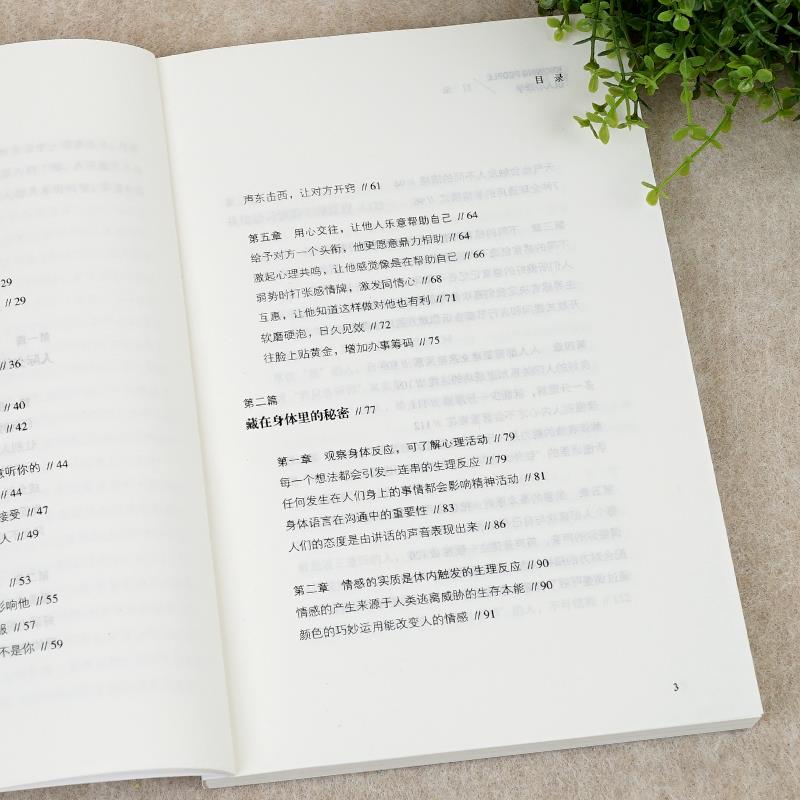 29
// 29
// 36
// 40
// 42
意听你的 // 44
// 44
接受 // 47
人 // 49
// 53
影响他 // 55
服 // 57
不是你 // 59
目 录
声东击西，让对方开窍 // 61
第五章 用心交往，让他人乐意帮助自己 // 64
给予对方一个头衔，他更愿意鼎力相助 // 64
激起心理共鸣，让他感觉像是在帮助自己 // 66
弱势时打张感情牌，激发同情心 // 68
互惠，让他知道这样做对他也有利 // 71
软磨硬泡，日久见效 // 72
往脸上贴黄金，增加办事筹码 // 75
第二篇
藏在身体里的秘密 // 77
第一章 观察身体反应，可了解心理活动 // 79
每一个想法都会引发一连串的生理反应 // 79
任何发生在人们身上的事情都会影响精神活动 // 81
身体语言在沟通中的重要性 // 83
人们的态度是由讲话的声音表现出来 // 86
第二章 情感的实质是体内触发的生理反应 // 90
情感的产生来源于人类逃离威胁的生存本能 // 90
颜色的巧妙运用能改变人的情感 // 91
3